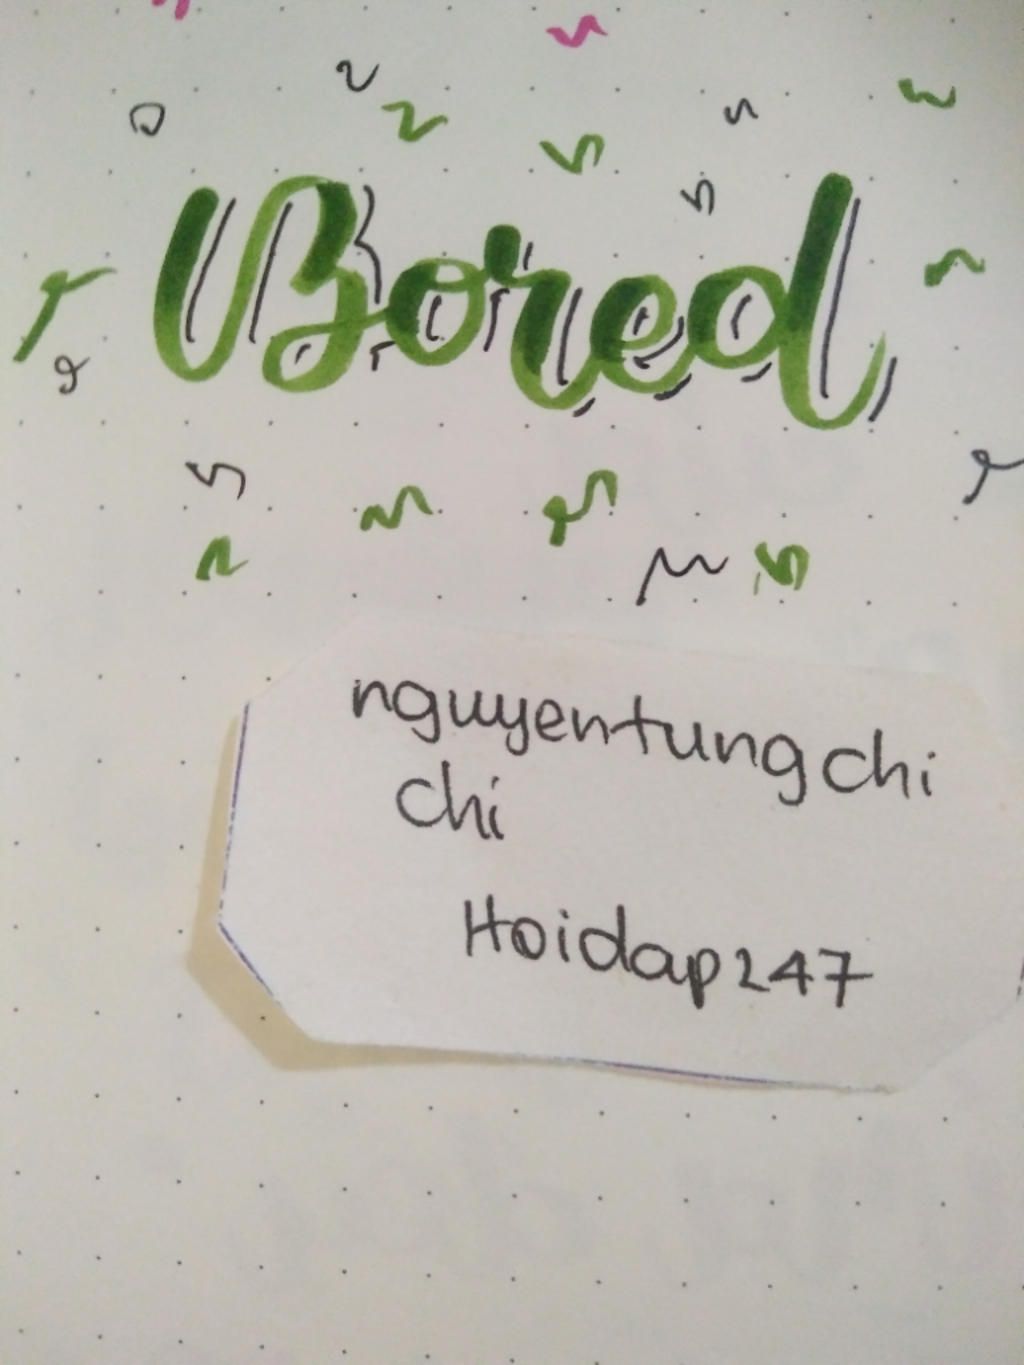 Bored
nguyentungchi
chi
Hoidap247